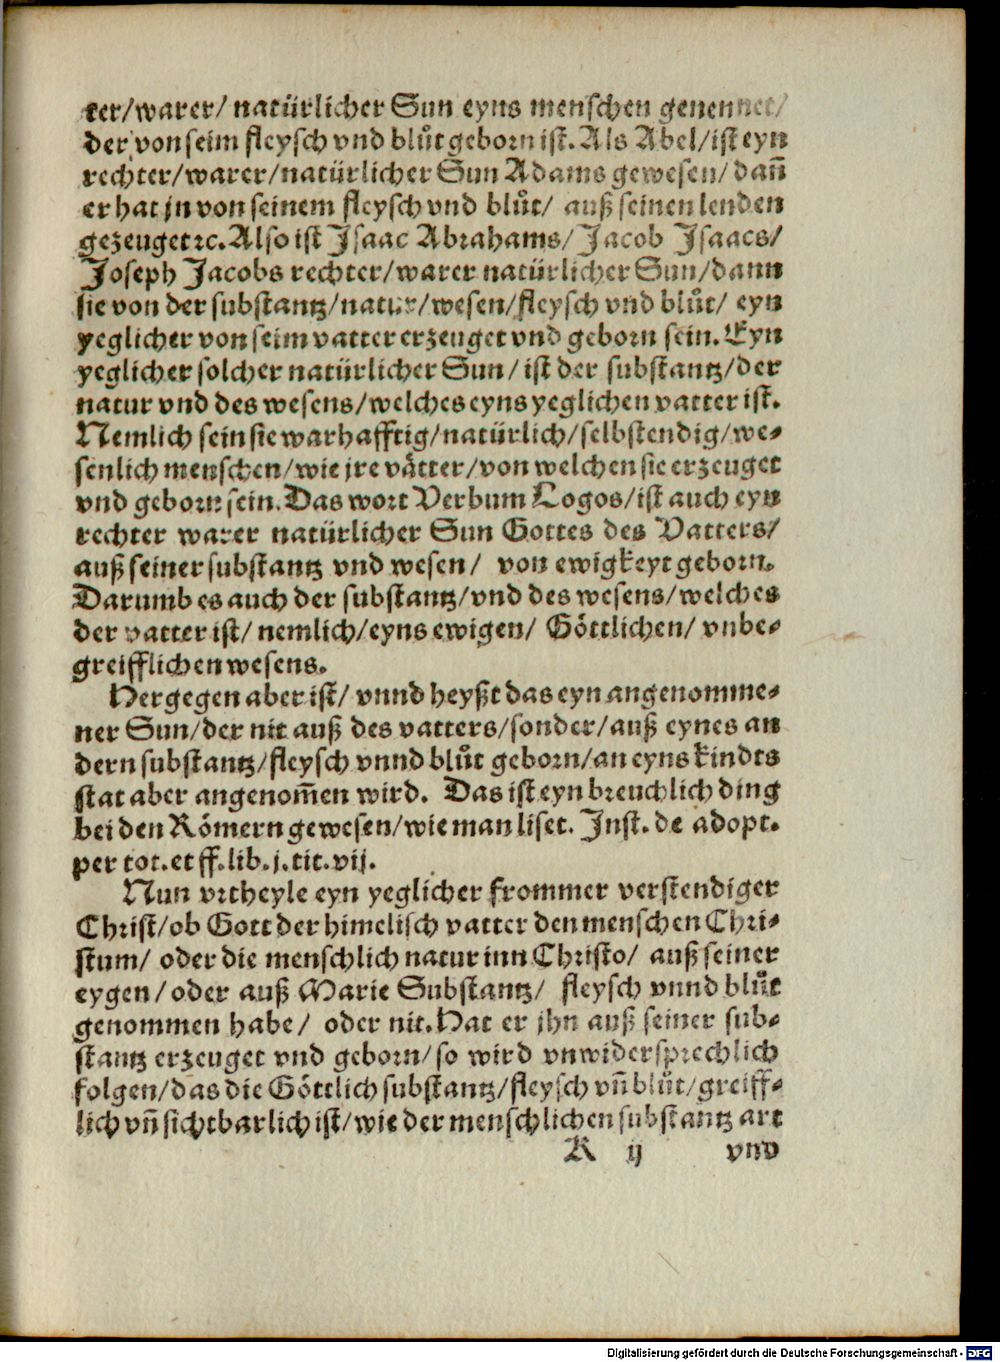 ter/warer/ natürlicher Sun eyns menschen genennet/
der von seim fleysch vnd blůt geborn ist. Als Abel/ist eyn
rechter/warer/natürlicher Sun Adams gewesen/dañ
er hat jn von seinem fleysch vnd blůt/ auß seinen lenden
gezeuget ꝛc. Also ist Isaac Abrahams/Jacob Isaacs/
Joseph Jacobs rechter/warer natürlicher Sun/dann
sie von der substantz/natur/wesen/fleysch vnd blůt/ eyn
yeglicher von seim vatter erzeuget vnd geborn sein. Eyn
yeglicher solcher natürlicher Sun/ist der substantz/der
natur vnd des wesens/welches eyns yeglichen vatter ist.
Nemlich sein sie warhafftig/natürlich/selbstendig/we⸗
senlich menschen/wie jre vaͤtter/von welchen sie erzeuget
vnd geborn sein. Das wort Verbum Logos/ist auch eyn
rechter warer natürlicher Sun Gottes des Vatters/
auß seiner substantz vnd wesen/ von ewigkeyt geborn.
Darumb es auch der substantz/vnd des wesens/welches
der vatter ist/ nemlich/eyns ewigen/ Goͤttlichen/ vnbe⸗
greifflichen wesens.
Hergegen aber ist/ vnnd heyßt das eyn angenomme⸗
ner Sun/der nit auß des vatters/sonder/auß eynes an
dern substantz/fleysch vnnd blůt geborn/an eyns kindts
stat aber angenom̃en wird. Das ist eyn breuchlich ding
bei den Roͤmern gewesen/wie man liset. Inst. de adopt.
per tot. et ff. lib. j. tit. vij.
Nun vrtheyle eyn yeglicher frommer verstendiger
Christ/ob Gott der himelisch vatter den menschen Chri⸗
stum/ oder die menschlich natur inn Christo/ auß seiner
eygen/oder auß Marie Substantz/ fleysch vnnd blůt
genommen habe/ oder nit. Hat er jhn auß seiner sub⸗
stantz erzeuget vnd geborn/so wird vnwidersprechlich
folgen/das die Goͤttlich substantz/fleysch vñ blůt/greiff⸗
lich vñ sichtbarlich ist/wie der menschlichen substantz art
K ij vnd
Digitalisierung gefördert durch die Deutsche Forschungsgemeinschaft - DFG